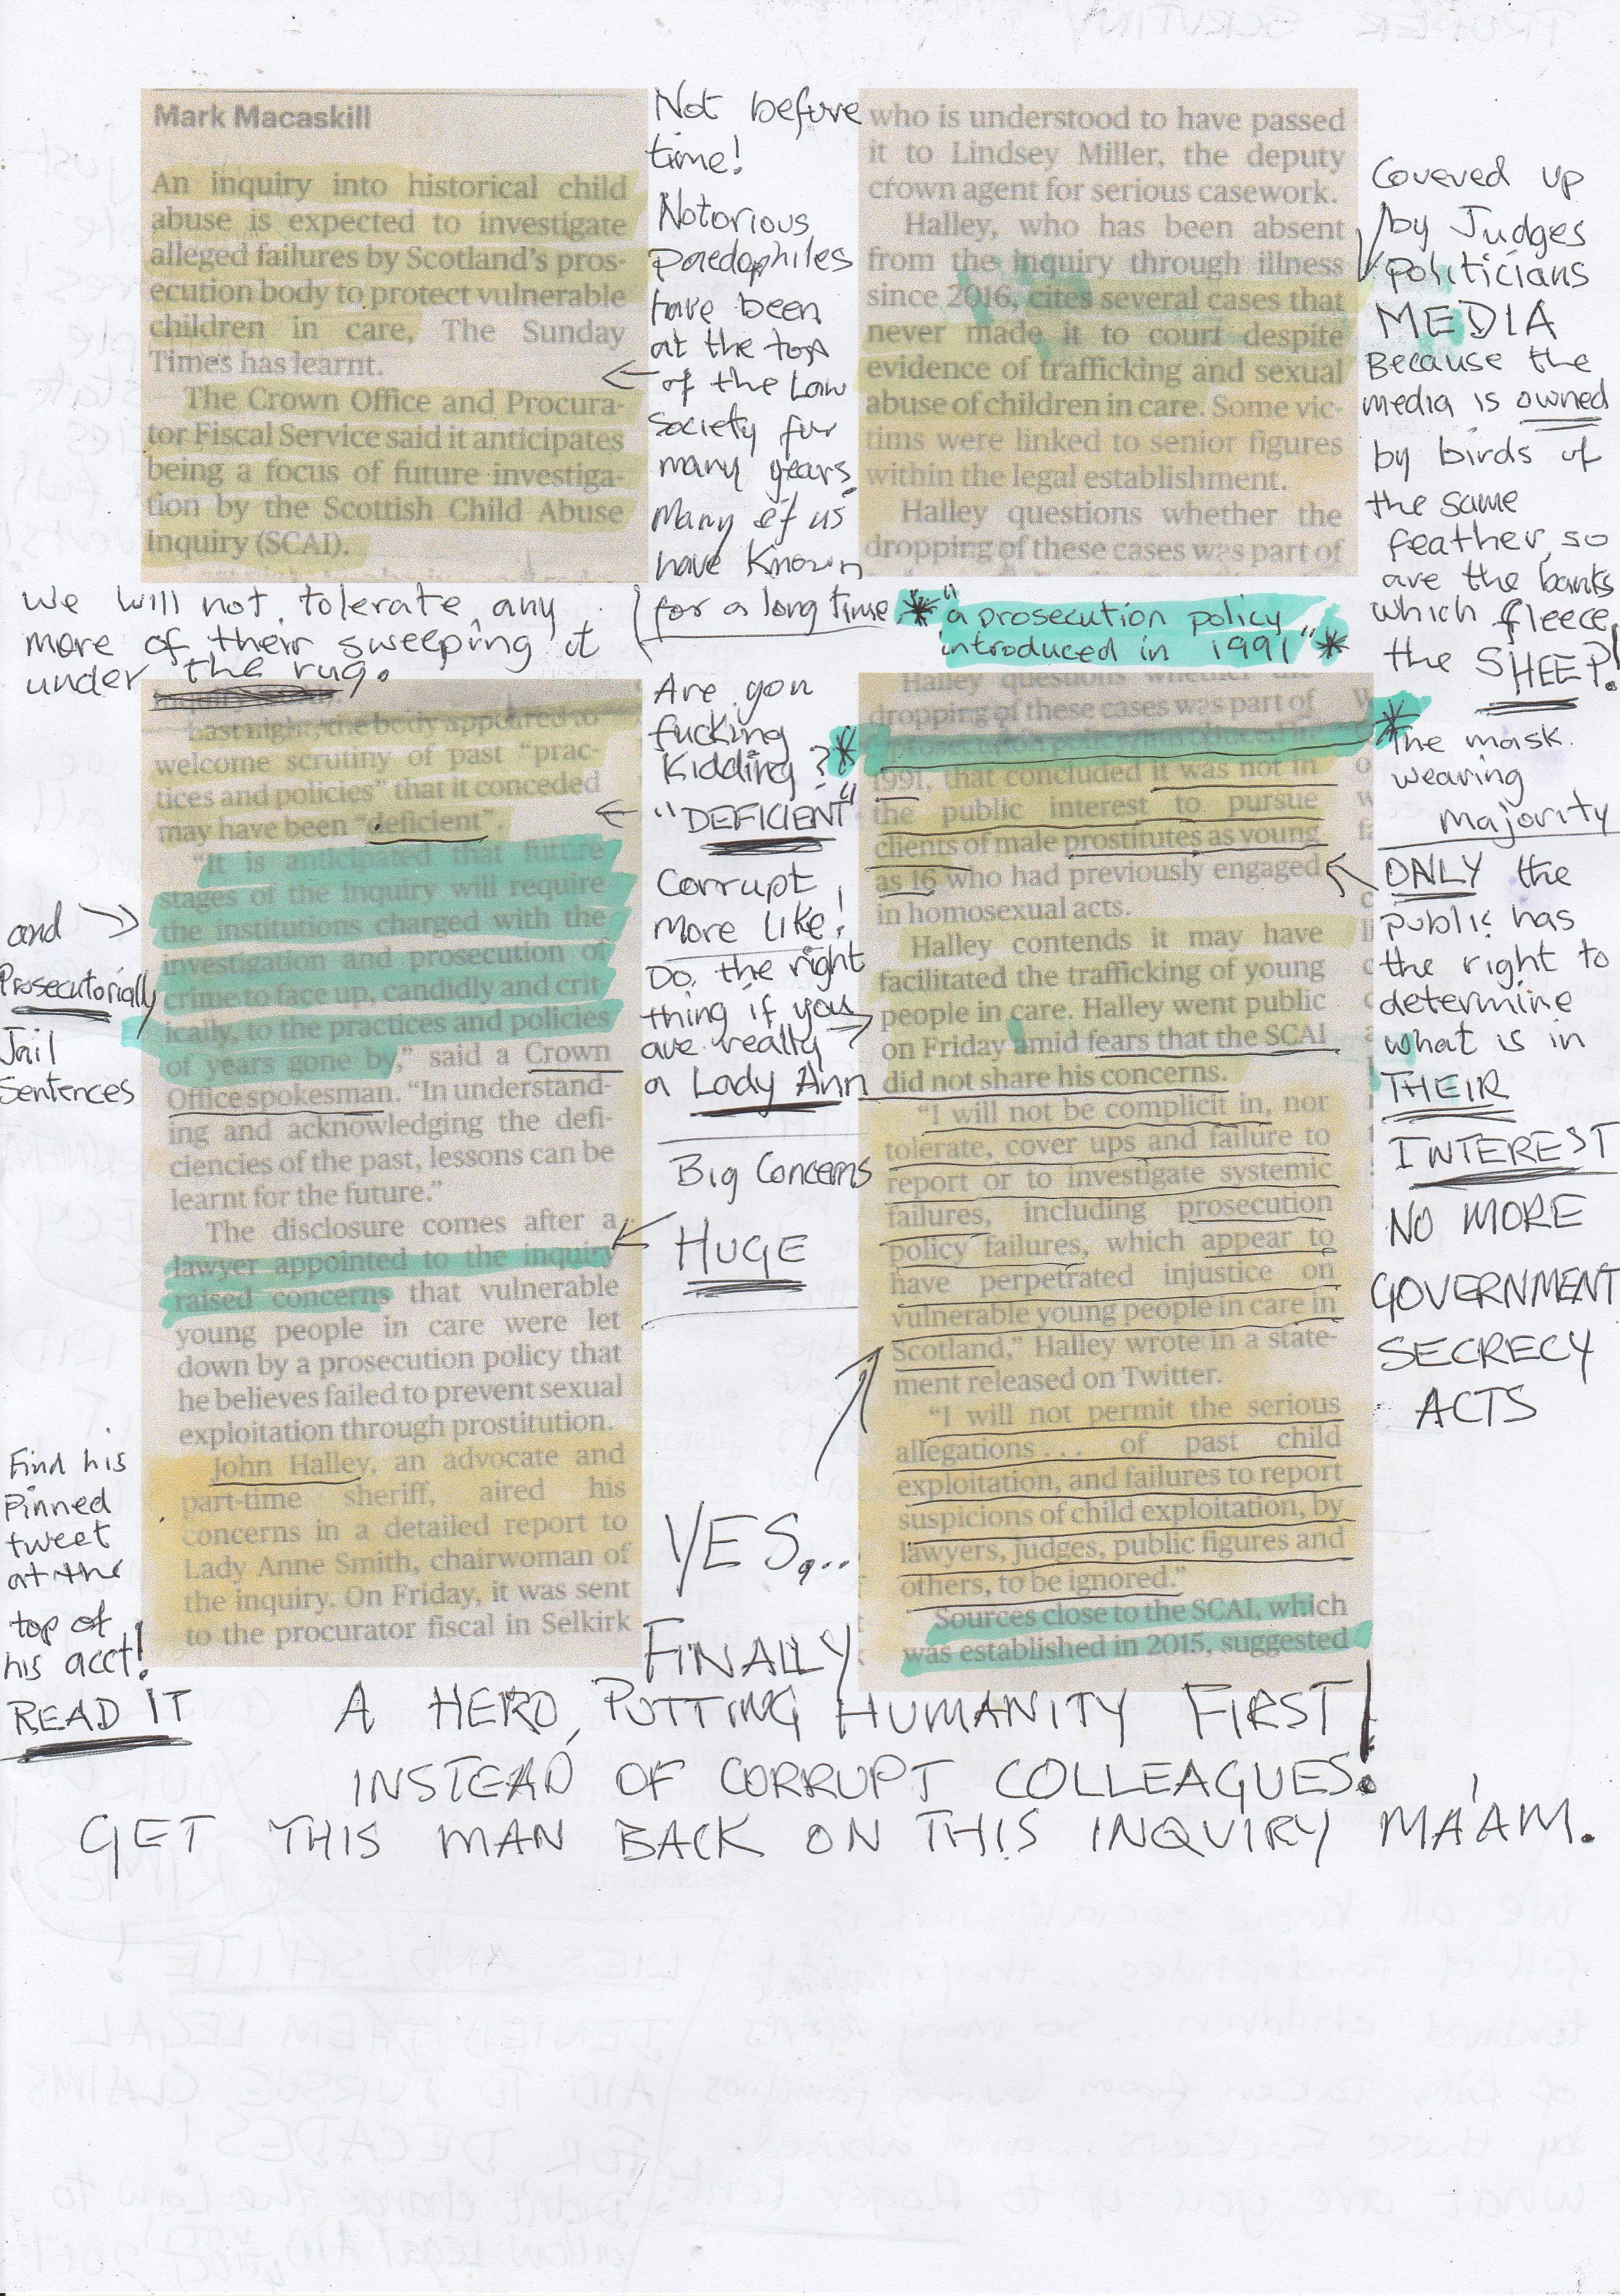 Mark Macaskill
An inquiry into historical child
abuse is expected to investigate
alleged failures by Scotland's pros-
ecution body to protect vulnerable
children in care, The Sunday
Times has learnt.
The Crown Office and Procura-
tor Fiscal Service said it anticipates
being a focus of future investiga-
tion by the Scottish Child Abuse
Inquiry (SCAI).
Not before
time!
Notorious
paedophiles
have been
at the top
of the Law
Society for
many years.
Many of us
have known
for a long time
who is understood to have passed
it to Lindsey Miller, the deputy
crown agent for serious casework.
Halley, who has been absent
from the inquiry through illness
since 2016, cites several cases that
never made it to court despite
evidence of trafficking and sexual
abuse of children in care. Some vic-
tims were linked to senior figures
within the legal establishment.
Halley questions whether the
dropping of these cases was part of
* "a prosecution policy
introduced in 1991" *
Covered up
by Judges
politicians
MEDIA
Because the
media is owned
by birds of
the same
feather, so
are the banks
which fleece
the SHEEP!
we will not tolerate any
more of their sweeping it
under the rug.
Last night, the body appeared to
welcome scrutiny of past "prac-
tices and policies" that it conceded
may have been "deficient".
"It is anticipated that future
stages of the inquiry will require
the institutions charged with the
investigation and prosecution of
crime to face up, candidly and crit-
ically, to the practices and policies
of years gone by," said a Crown
Office spokesman. "In understand-
ing and acknowledging the defi-
ciencies of the past, lessons can be
learnt for the future."
The disclosure comes after a
lawyer appointed to the inquiry
raised concerns that vulnerable
young people in care were let
down by a prosecution policy that
he believes failed to prevent sexual
exploitation through prostitution.
John Halley, an advocate and
part-time sheriff, aired his
concerns in a detailed report to
Lady Anne Smith, chairwoman of
the inquiry. On Friday, it was sent
to the procurator fiscal in Selkirk
and
Prosecutorially
Jail
Sentences
Find his
pinned
tweet
at the
top of
his acct!
READ IT
Are you
fucking
kidding?
"DEFICIENT"
Corrupt
more like!
Do the right
thing if you
are really
a Lady Ann
Big Concerns
HUGE
YES...
FINALLY
Halley questions whether the
dropping of these cases was part of
prosecution policy introduced in
1991, that concluded it was not in
the public interest to pursue
clients of male prostitutes as young
as 16 who had previously engaged
in homosexual acts.
Halley contends it may have
facilitated the trafficking of young
people in care. Halley went public
on Friday amid fears that the SCAI
did not share his concerns.
"I will not be complicit in, nor
tolerate, cover ups and failure to
report or to investigate systemic
failures, including prosecution
policy failures, which appear to
have perpetrated injustice on
vulnerable young people in care in
Scotland," Halley wrote in a state-
ment released on Twitter.
"I will not permit the serious
allegations... of past child
exploitation, and failures to report
suspicions of child exploitation, by
lawyers, judges, public figures and
others, to be ignored."
Sources close to the SCAI, which
was established in 2015, suggested
* the mask
wearing
majority
ONLY the
public has
the right to
determine
what is in
THEIR
INTEREST
NO MORE
GOVERNMENT
SECRECY
ACTS
A HERO, PUTTING HUMANITY FIRST!
INSTEAD OF CORRUPT COLLEAGUES.
GET THIS MAN BACK ON THIS INQUIRY MA'AM.